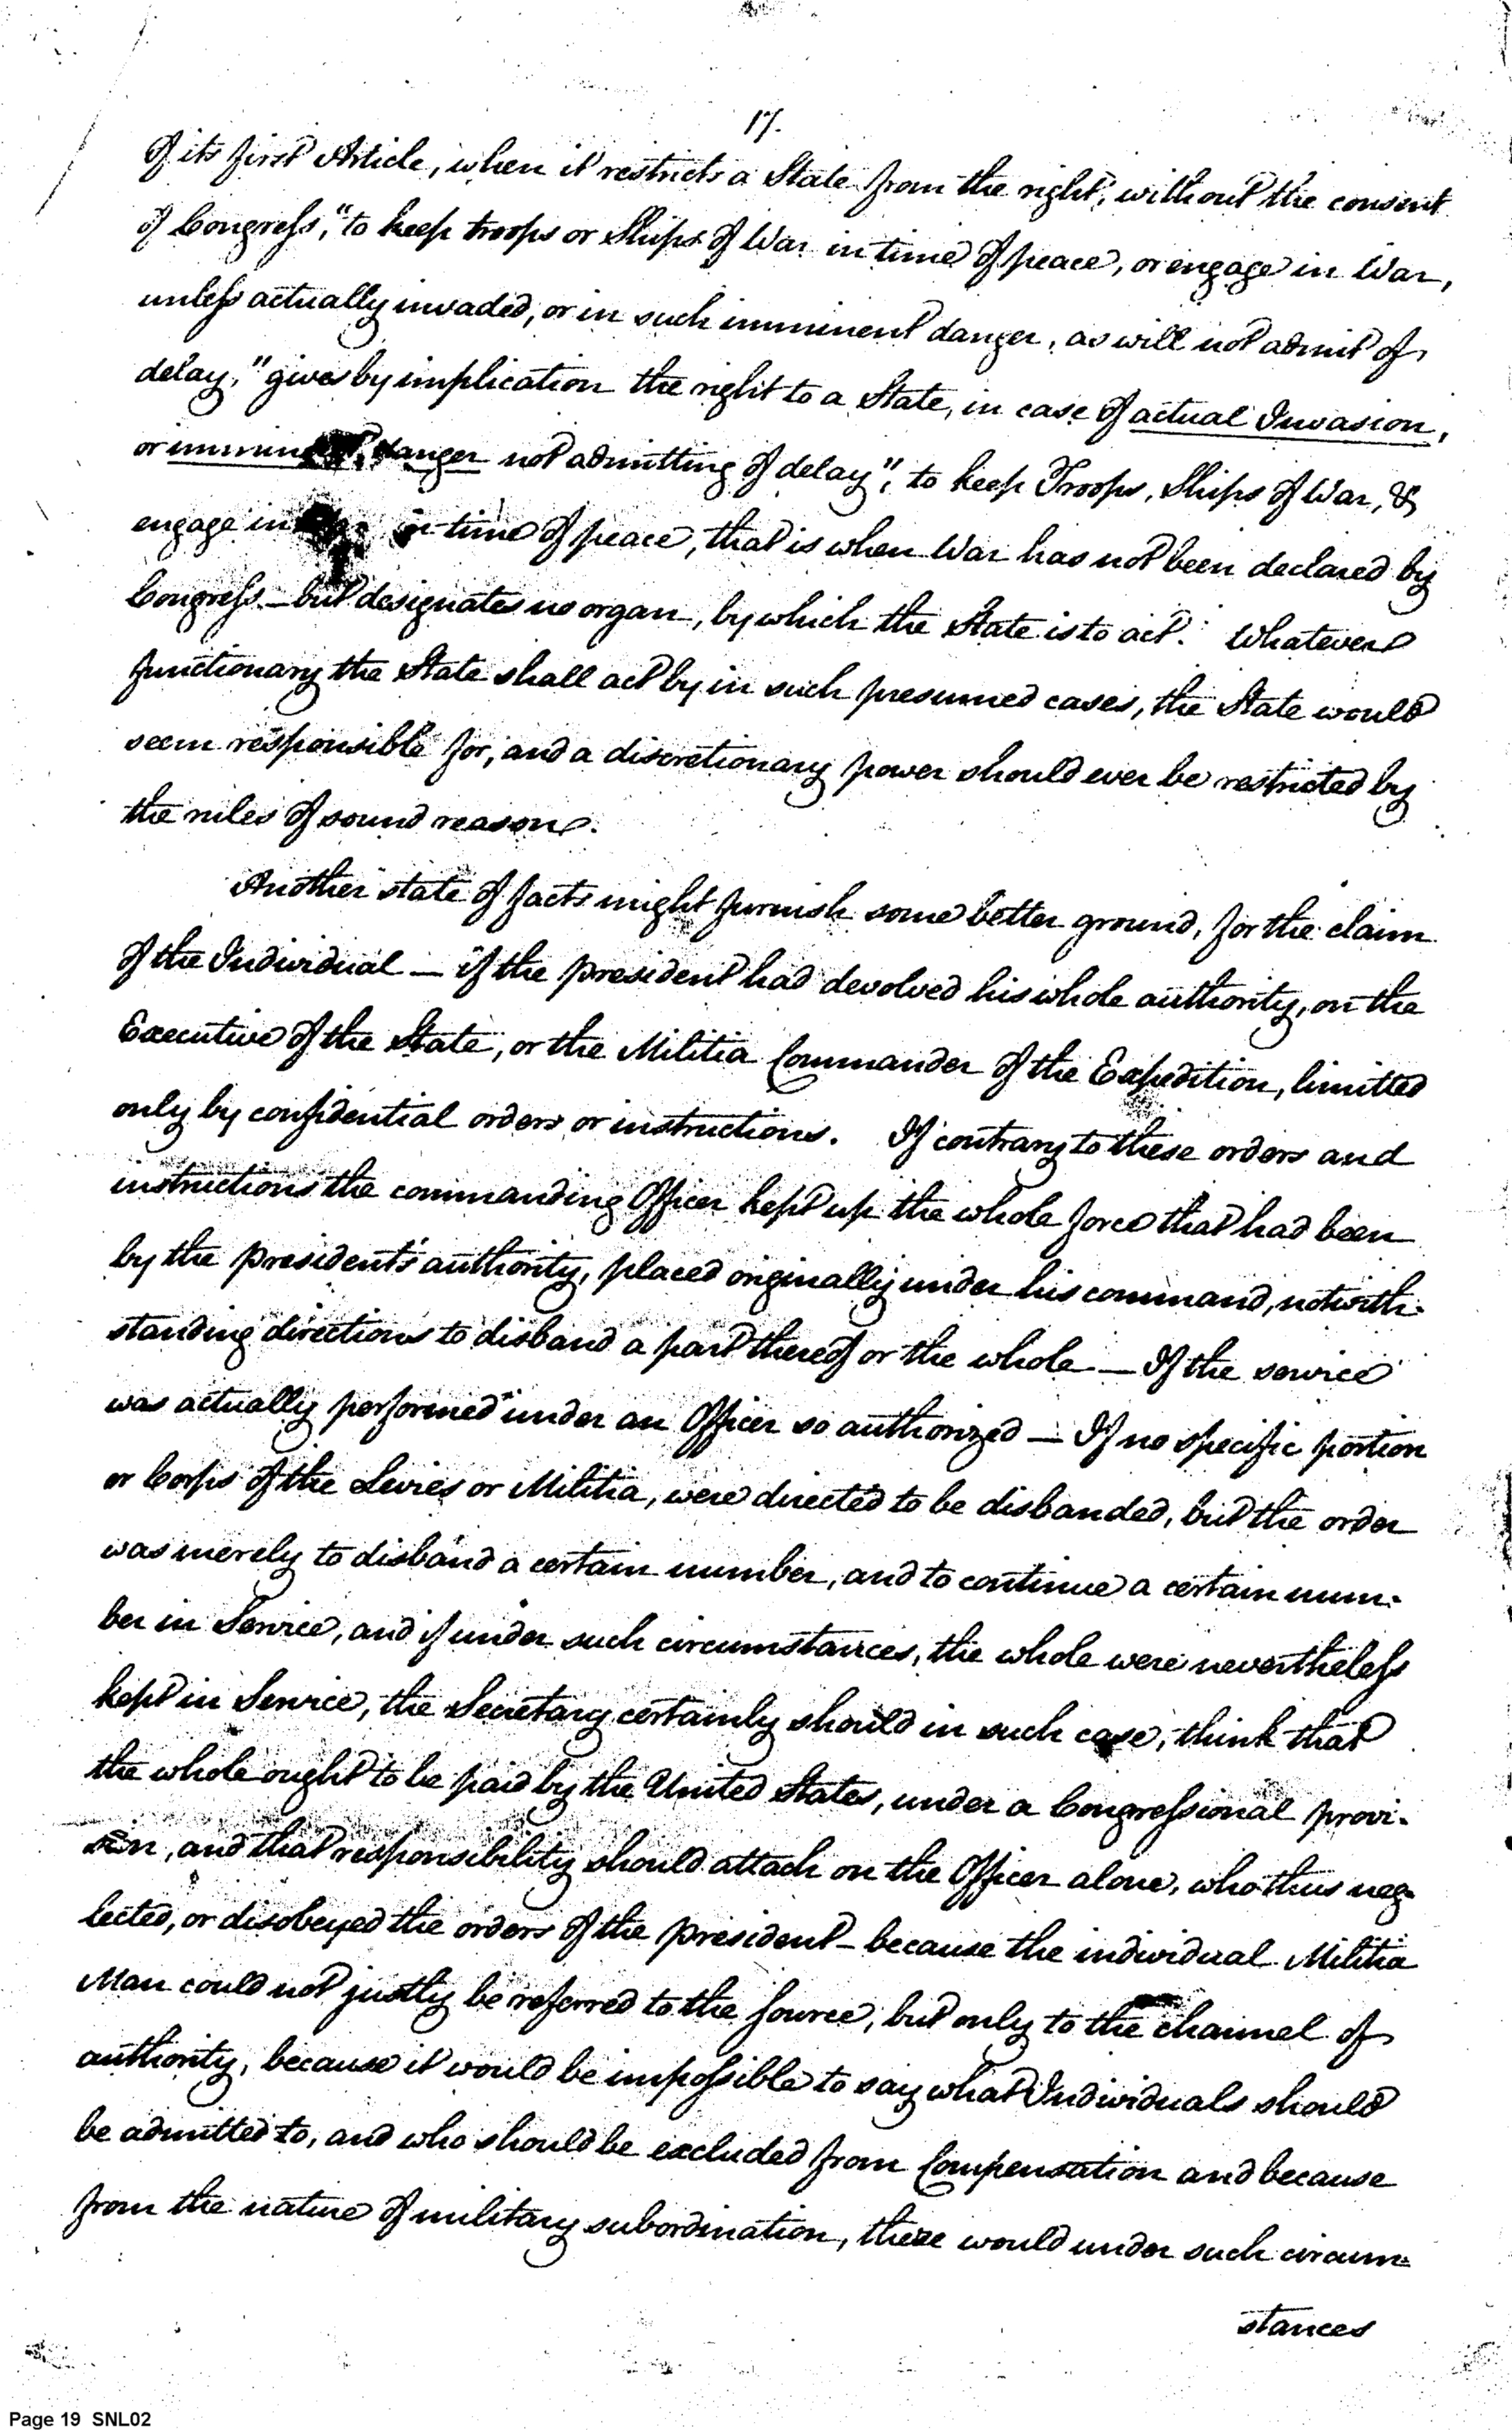 17.
of its first Article, when it restricts a State from the right, without the consent
of Congress, "to keep troops or Ships of War in time of peace, or engage in War,
unless actually invaded, or in such imminent danger, as will not admit of
delay," gives by implication the right to a State, in case of actual Invasion,
or imminent danger not admitting of delay", to keep Troops, Ships of War, &
engage in in time of peace, that is when War has not been declared by
Congress – but designates no organ, by which the State is to act. Whatever
functionary the State shall act by in such presumed cases, the State would
seem responsible for, and a discretionary power should ever be restricted by
the rules of sound reason.
Another state of facts might furnish some better ground, for the claim
of the Individual — if the president had devolved his whole authority, on the
Executive of the State, or the Militia Commander of the Expedition, limitted
only by confidential orders or instructions. If contrary to these orders and
instructions the commanding Officer kept up the whole force that had been
by the president's authority, placed originally under his command, notwith-
standing directions to disband a part thereof or the whole — If the service
was actually performed under an Officer so authorized — If no specific portion
or Corps of the Levies or Militia, were directed to be disbanded, but the order
was merely to disband a certain number, and to continue a certain num-
ber in Service, and if under such circumstances, the whole were nevertheless
kept in Service, the Secretary certainly should in such case, think that
the whole ought to be paid by the United States, under a Congressional provi-
sion, and that responsibility should attach on the Officer alone, who thus neg-
lected, or disobeyed the orders of the president – because the individual Militia
Man could not justly be referred to the source, but only to the channel of
authority, because it would be impossible to say what Individuals should
be admitted to, and who should be excluded from Compensation and because
from the nature of military subordination, there would under such circum-
stances
Page 19 SNL02